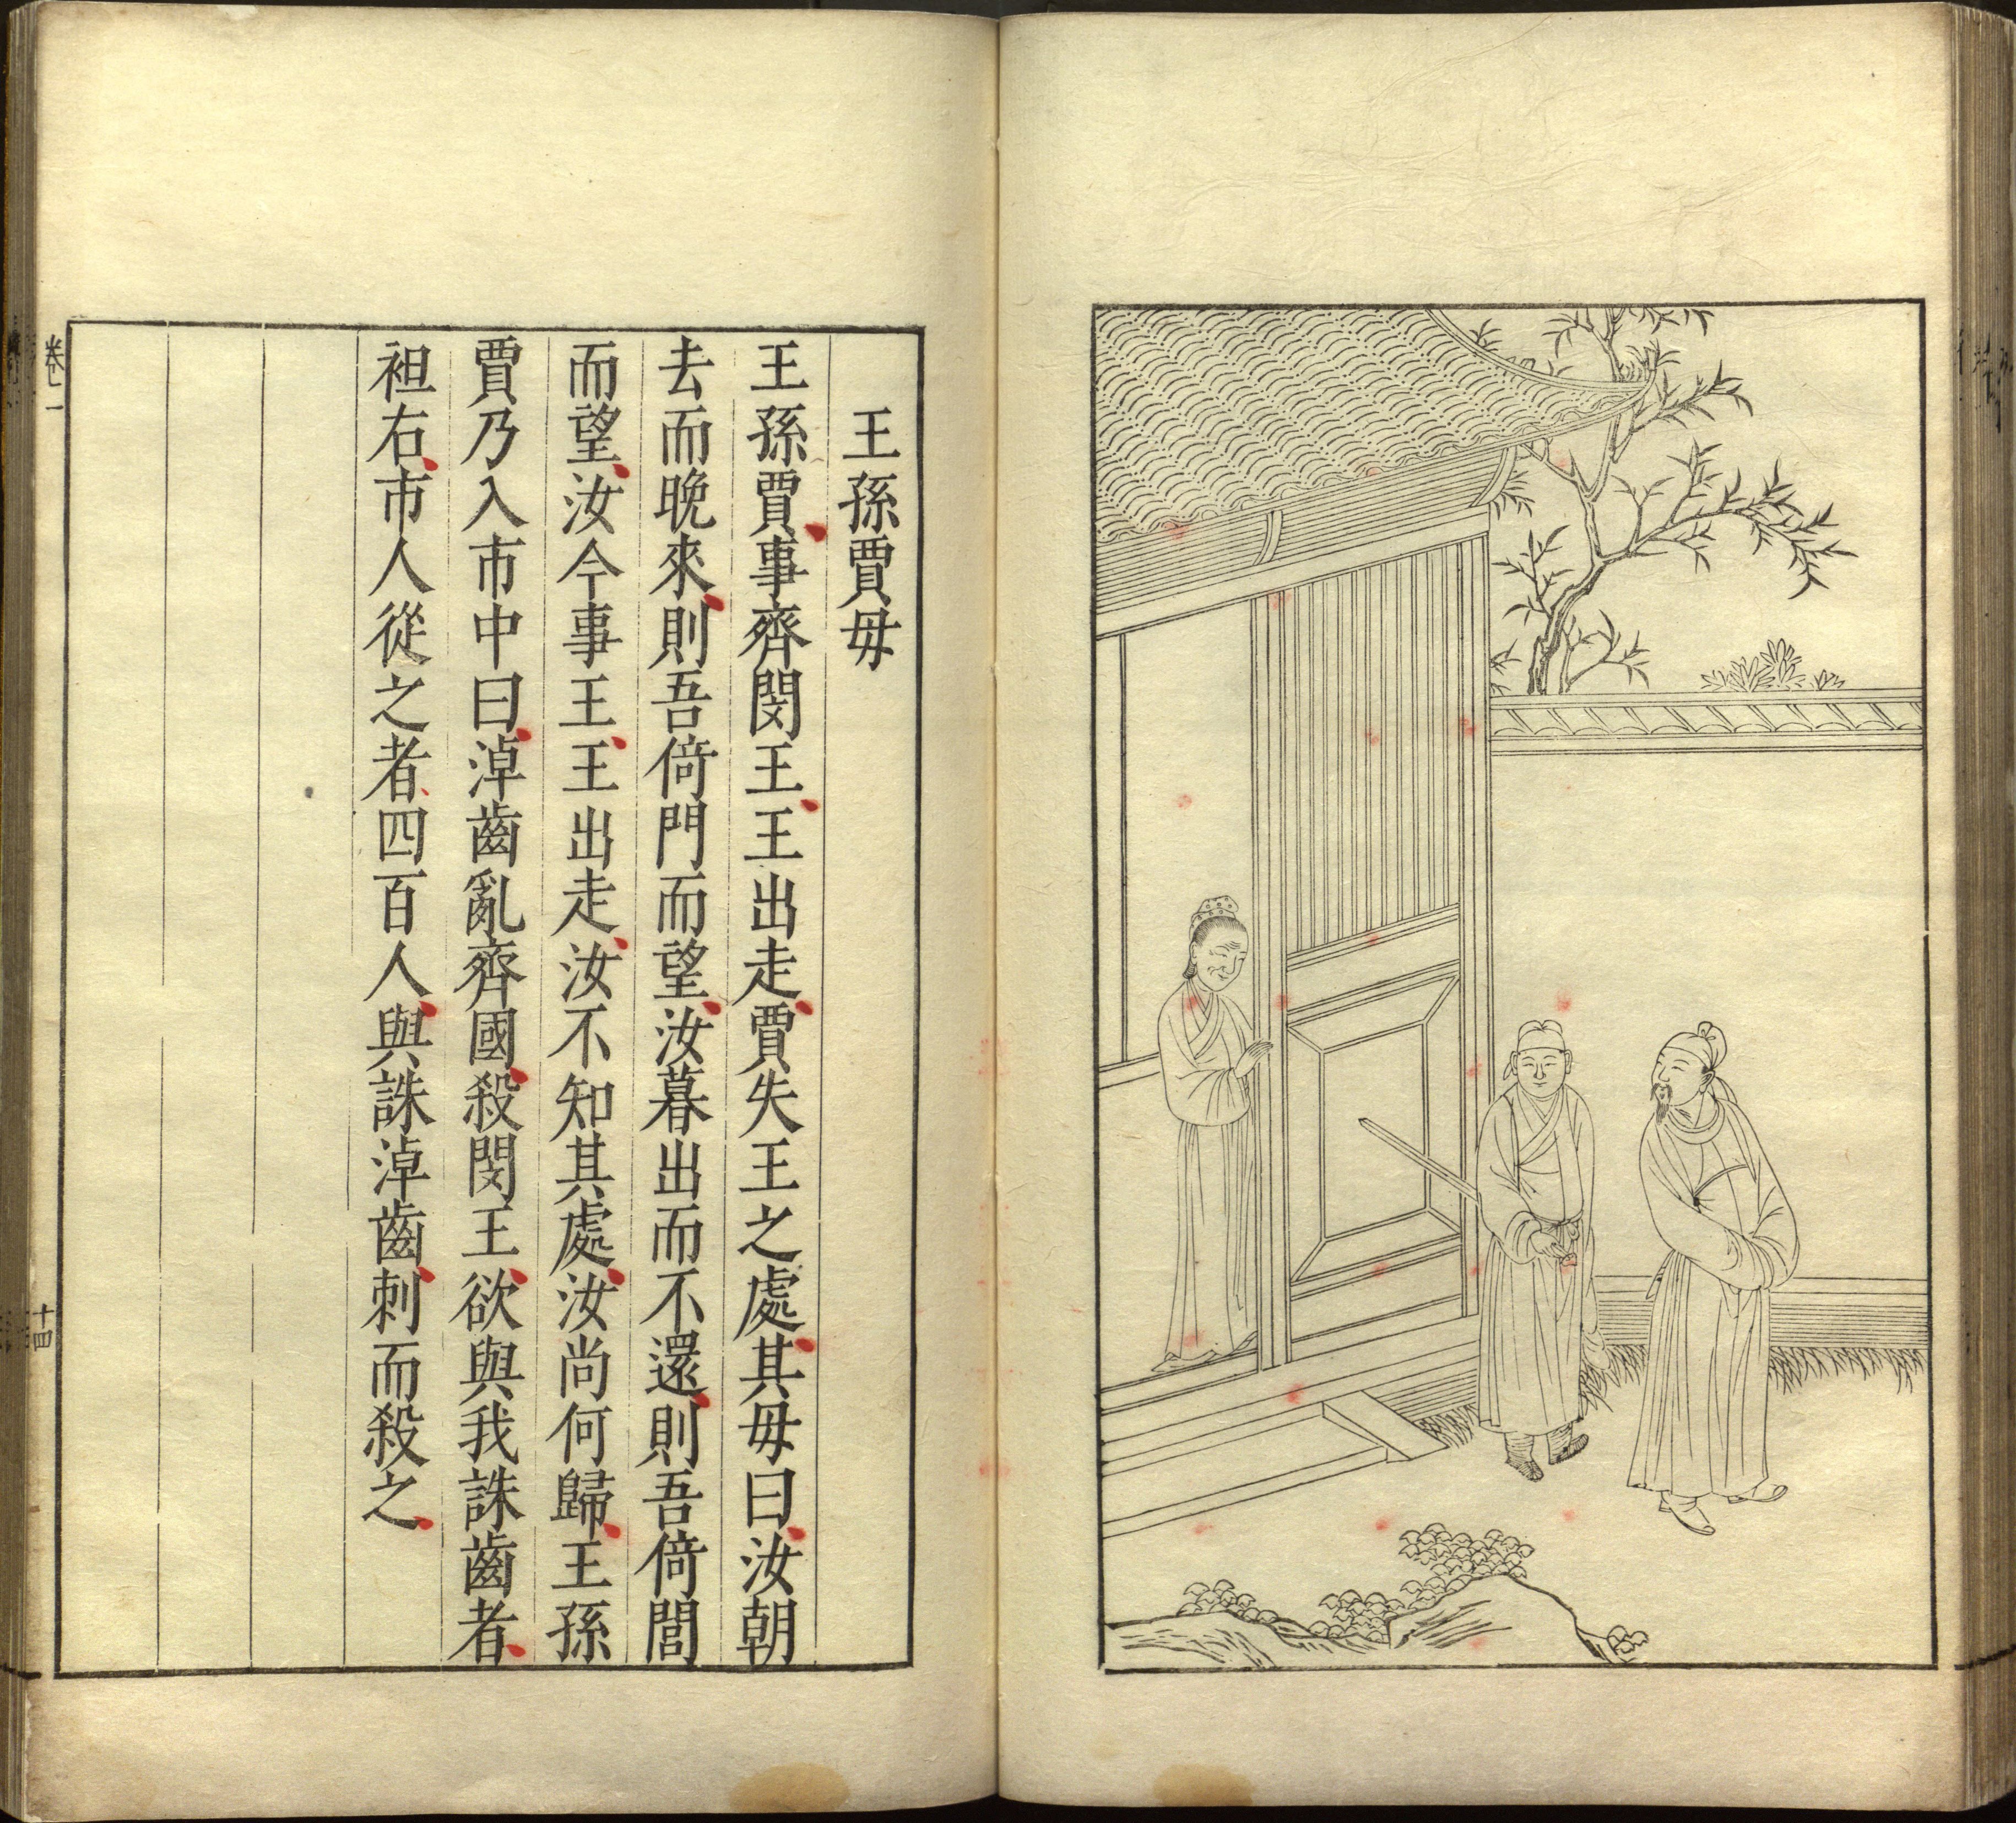 王孫賈母
王孫賈事齊閔王王出走賈失王之處其母曰汝朝
去而晚來則吾倚門而望汝暮出而不還則吾倚閭
而望汝今事王王出走汝不知其處汝尚何歸王孫
賈乃入市中曰淖齒亂齊國殺閔王欲與我誅齒者
袒右市人從之者四百人與誅淖齒刺而殺之
卷一
十四